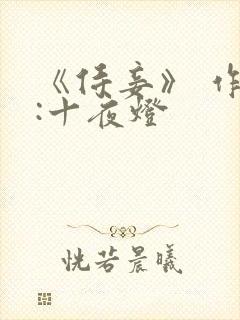 《侍妾》 作
:十夜燈
恍若晨曦